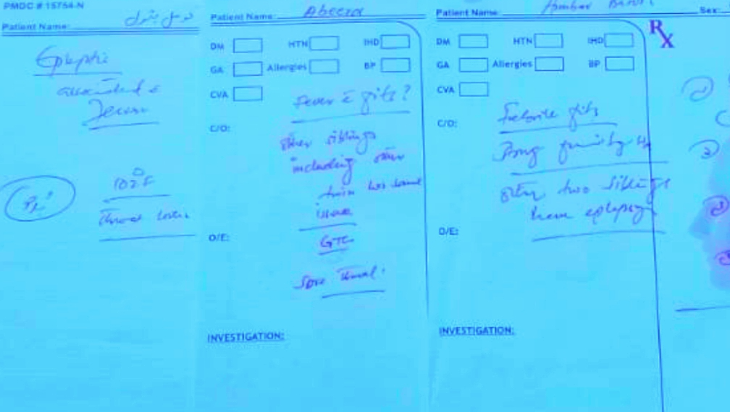 PMDC # 15754-N
Patient Name:
Epileptic
associated c
Fever
102°F
Throat
Patient Name: Abeera
DM HTN IHD
GA Allergies BP
CVA
C/O:
Fever c fits?
other siblings
including other
twin has same
issue
O/E:
GTC
Sore throat
INVESTIGATION:
Patient Name:
DM HTN IHD
GA Allergies BP
CVA
C/O:
Febrile fits
family Hx
other two siblings
have epilepsy
O/E:
INVESTIGATION:
Rx
Sex: